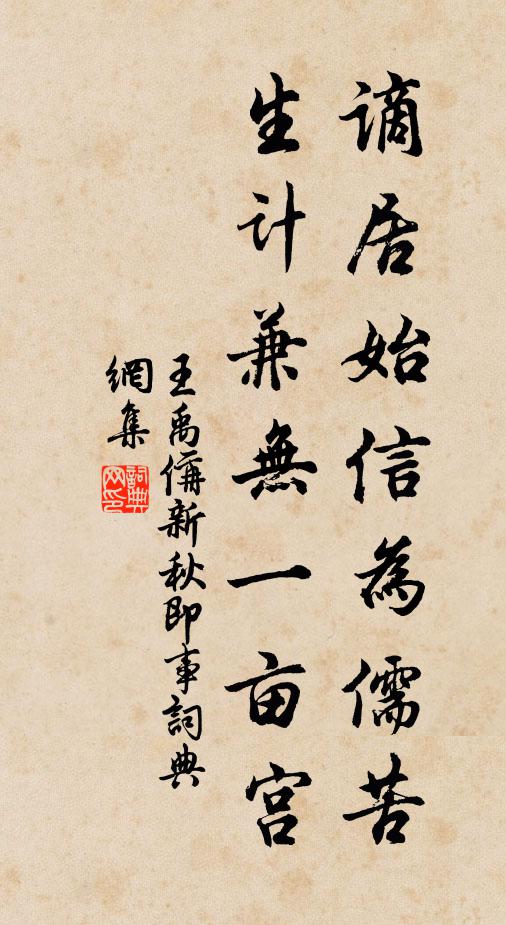 謫居始信為儒苦
生计兼無一亩宫
王禹偁新秋即事詞典
網集
詞典
网印